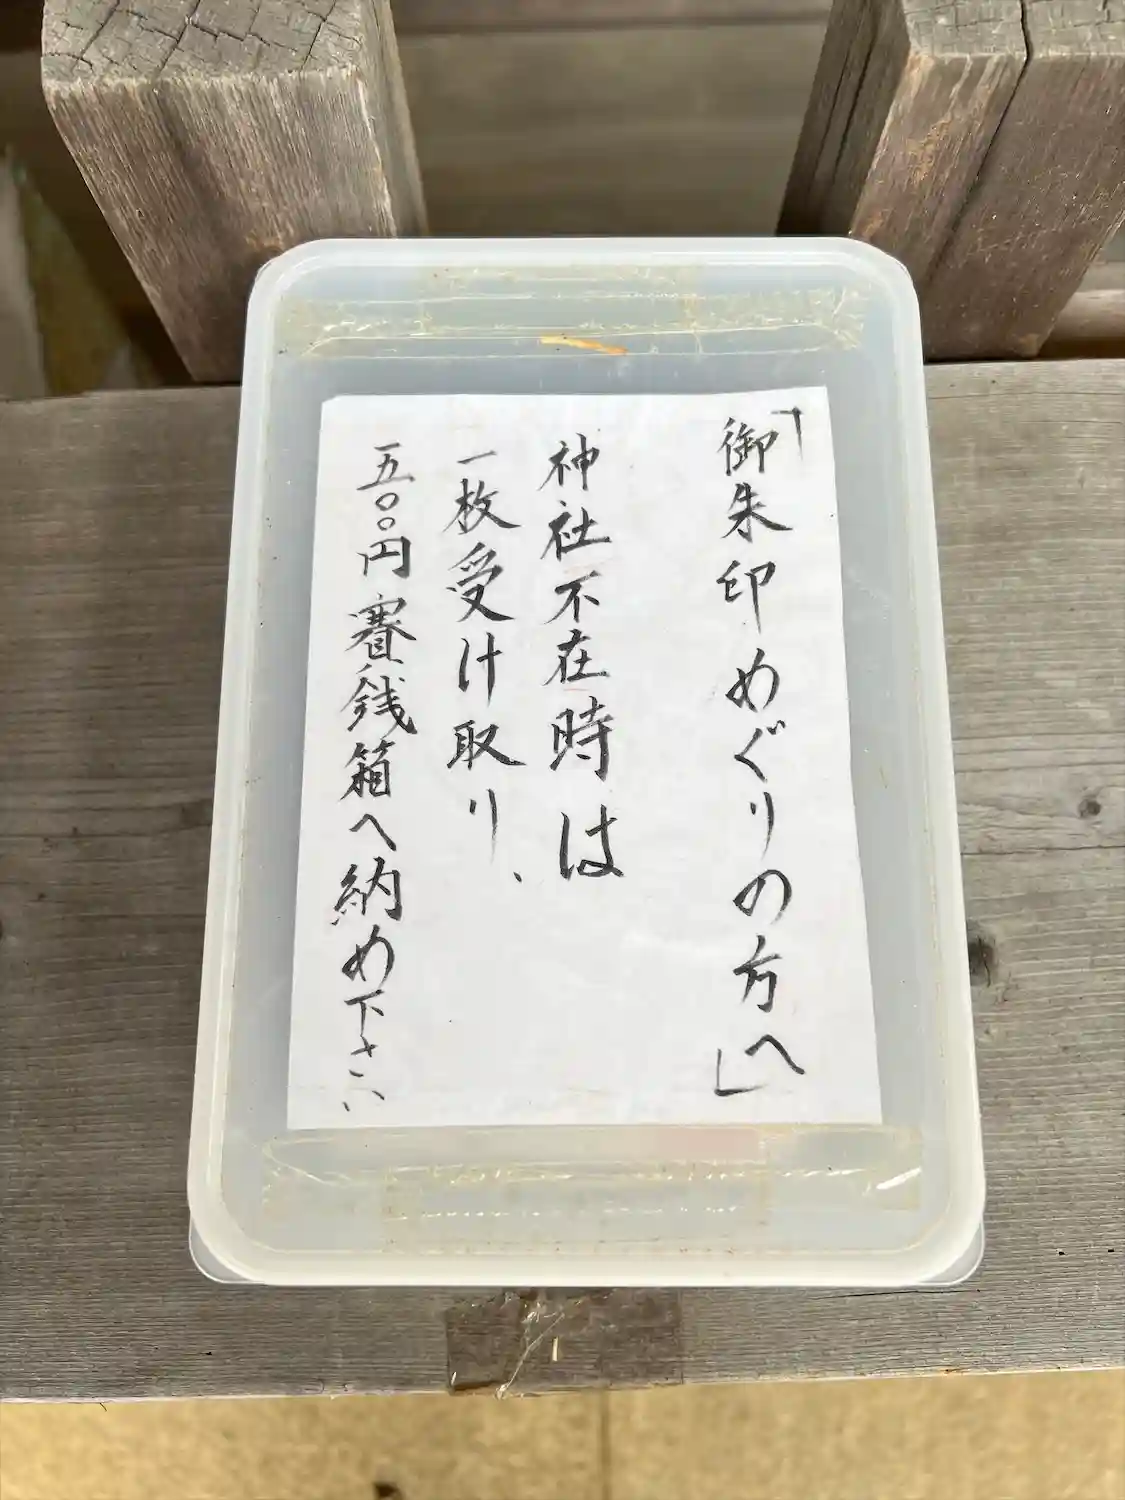 「御朱印めぐりの方へ」
神社不在時は
一枚受け取り、
五〇〇円賽銭箱へ納め下さい